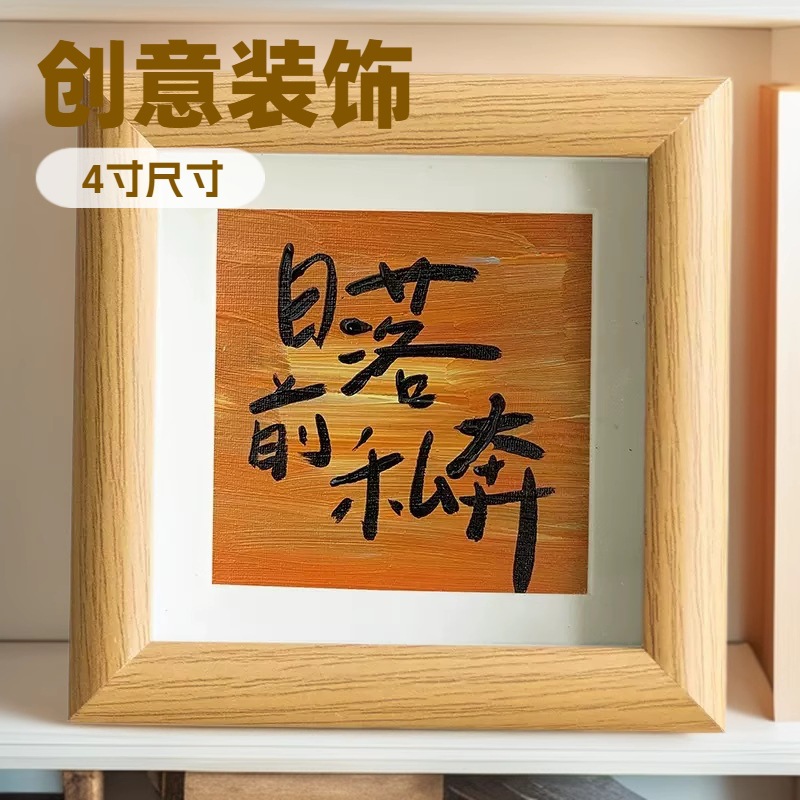 创意装饰
4寸尺寸
日落
前私奔